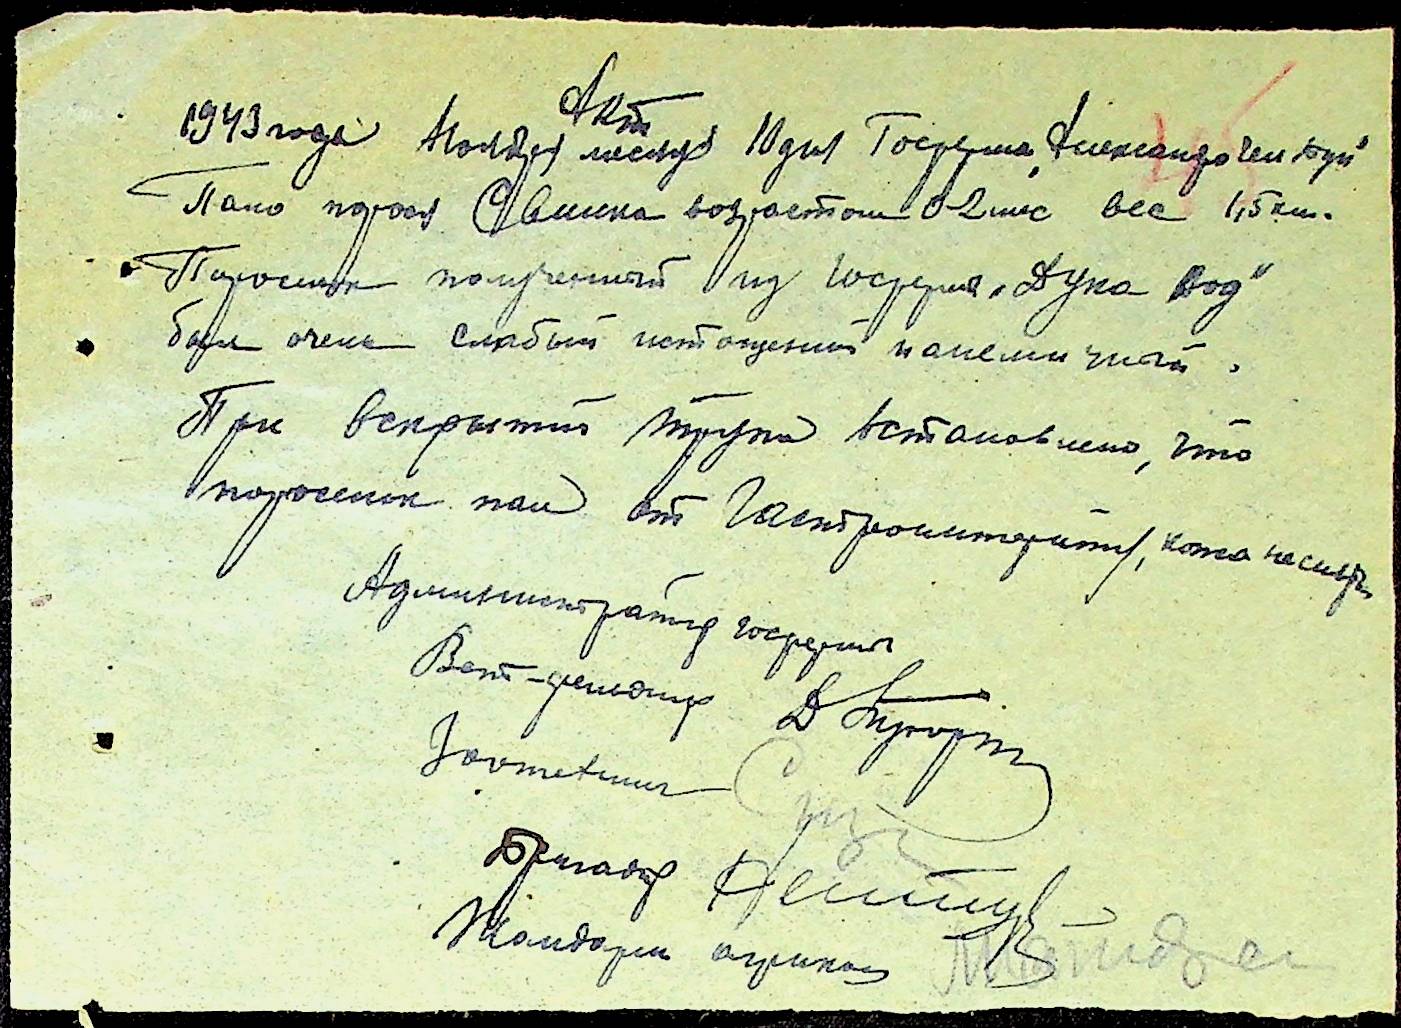 Акт
1943 года Ноября месяця 10 дня Госферма „Александро чел Бун"
Пало порося Свинка возрастом 0-2 мес вес 1,5 кгм.
Поросенок полученный из госферми „Дука Вод"
был очень слабый истощений и анемичный.
При вскрытии трупа встановлено, что
поросенок пал от Гастроэнтерита, кожа не снята
Администратор госферми
Вет-фельдшер
Зоотехник
Бригадир
Жандарм агрикол